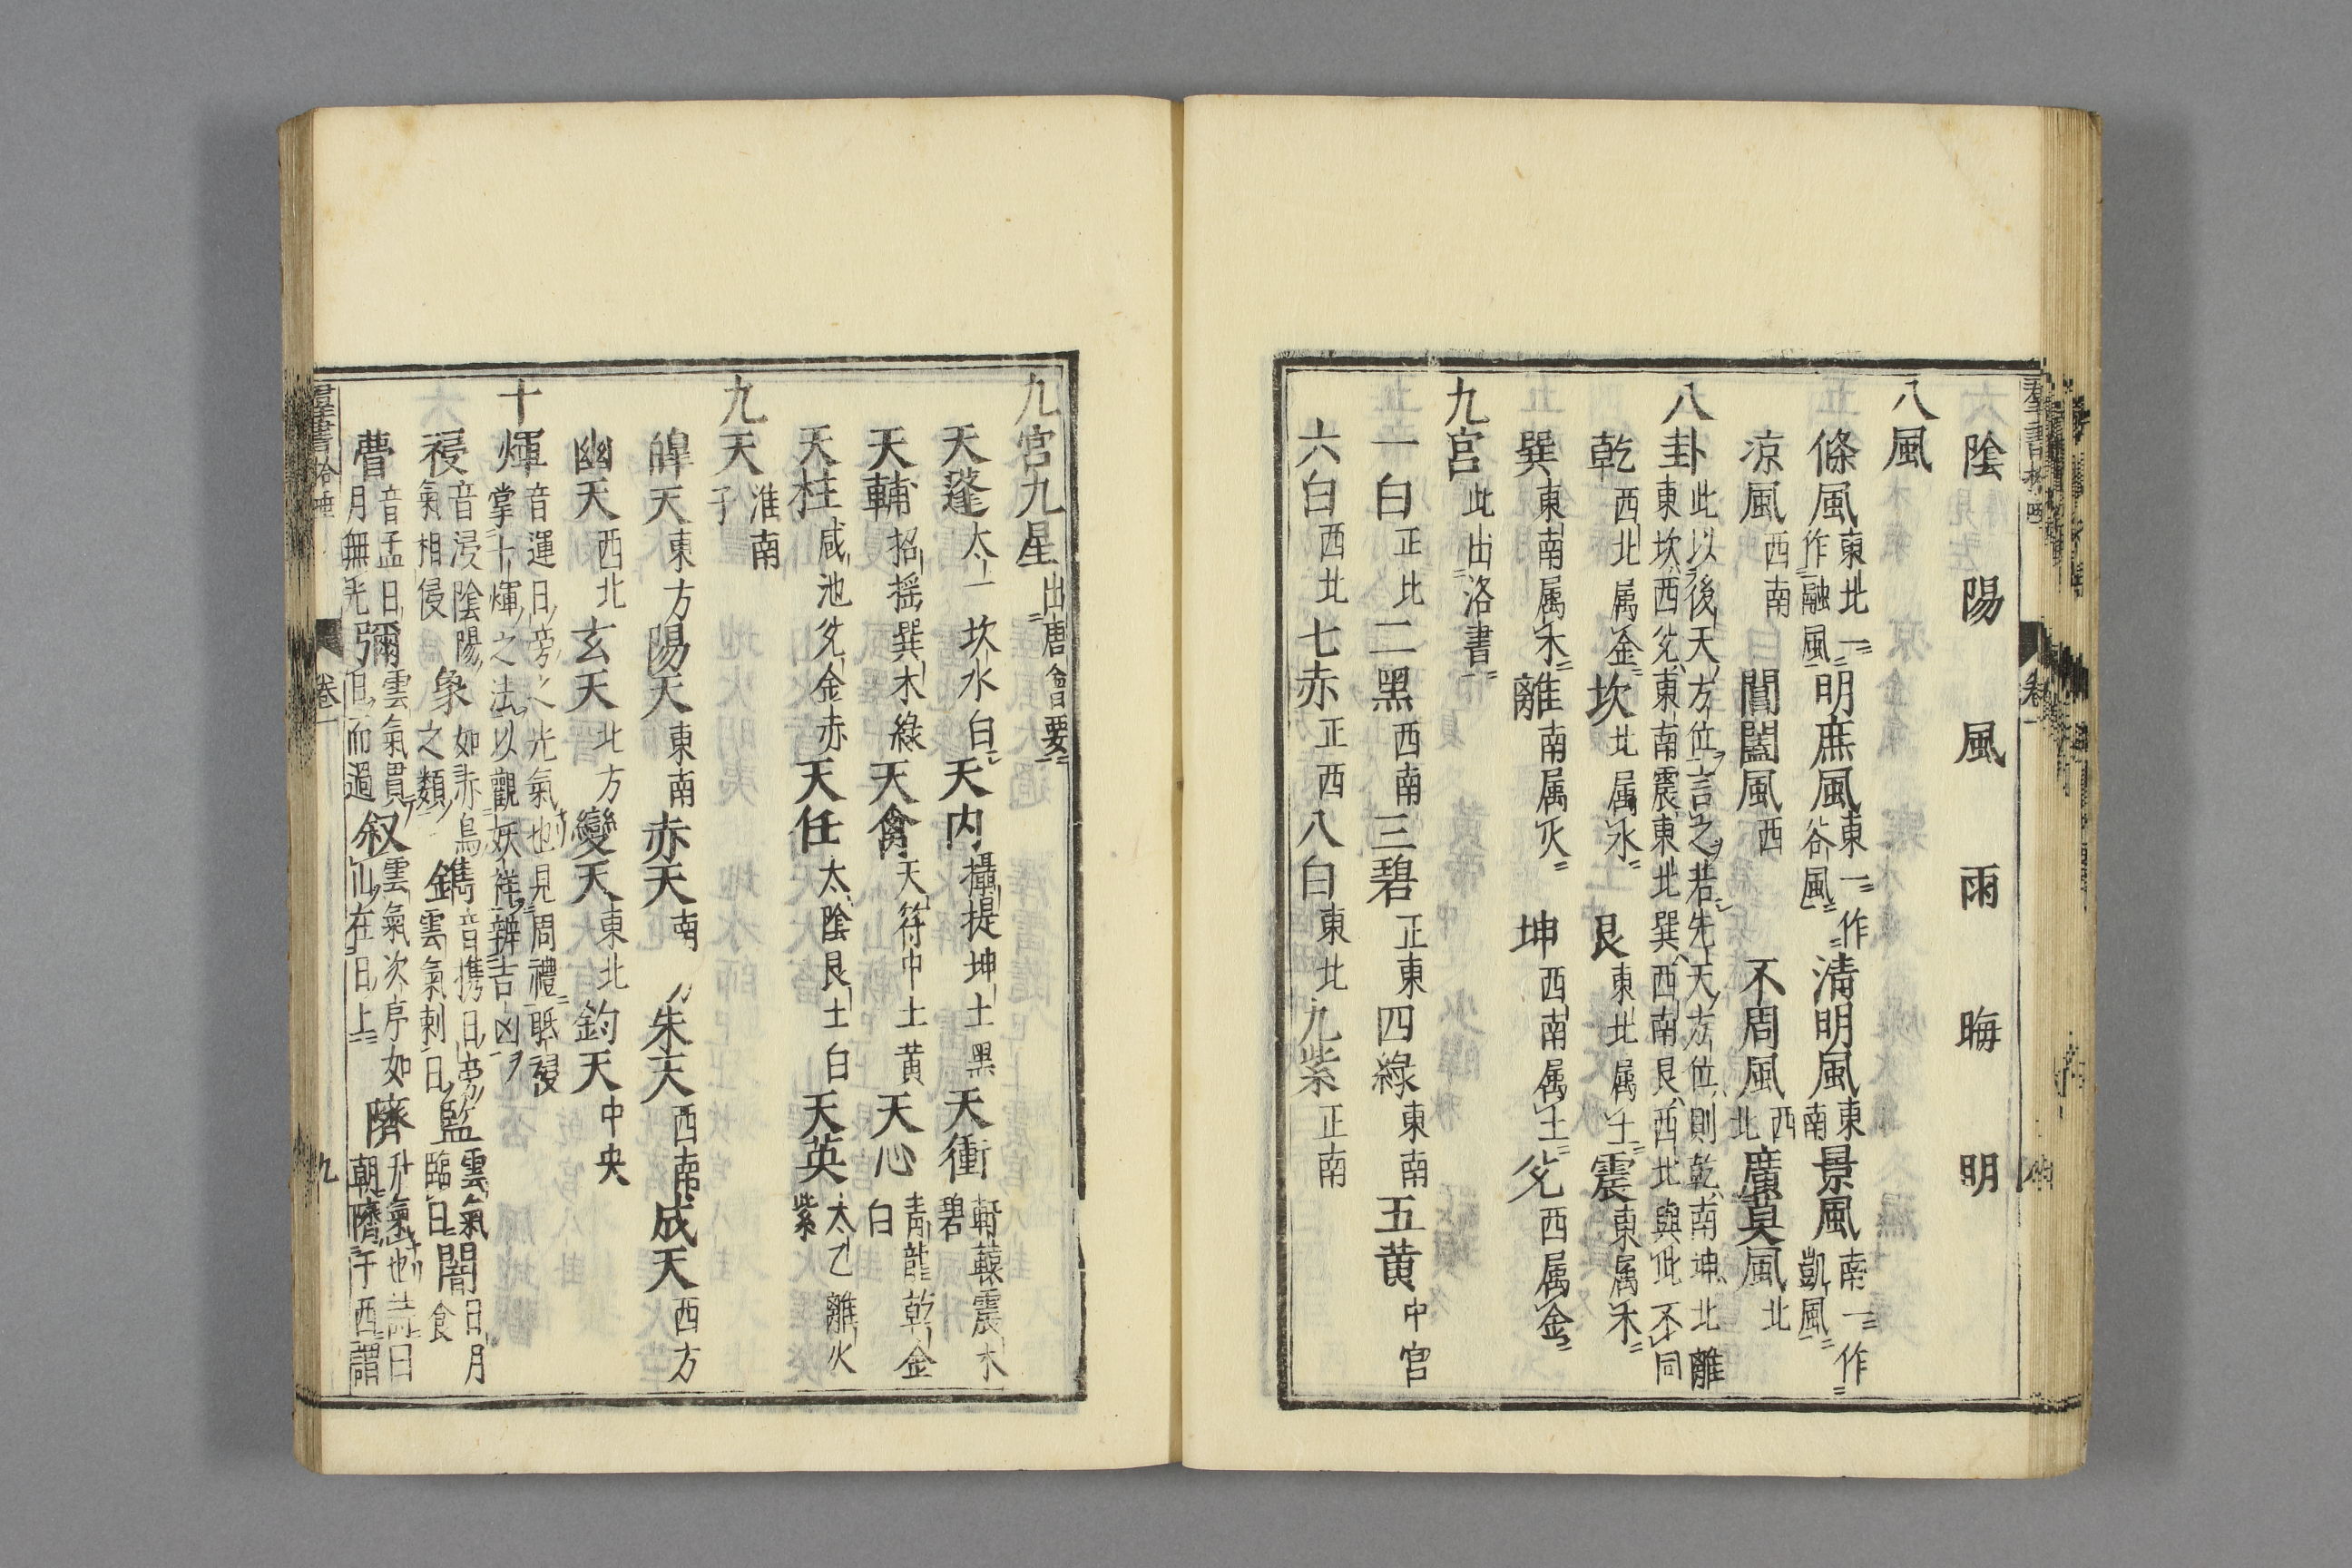 陰陽風雨晦明
八風
條風東北一作融風明庶風東一作谷風清明風東南景風南一作凱風
涼風西南閶闔風西不周風西北廣莫風北
八卦此以後天方位言之若先天方位則乾南坤北離東坎西兊東南震東北巽西南艮西北與此不同
乾西北属金坎北属水艮東北属土震東属木
巽東南属木離南属火坤西南属土兊西属金
九宮此出洛書
一白正北二黑西南三碧正東四綠東南五黄中宮
六白西北七赤正西八白東北九紫正南
九宮九星出唐會要
天蓬太一坎水白天内攝提坤土黑天衝軒轅震木碧
天輔招摇巽木綠天禽天符中土黄天心青龍乾金白
天柱咸池兊金赤天任太陰艮土白天英太乙離火紫
九天淮南子
皥天東方陽天東南赤天南方朱天西南成天西方
幽天西北玄天北方變天東北鈞天中央
十煇音運日旁之光氣也見周禮眂祲掌十煇之法以觀妖祥辨吉凶
祲音浸陰陽氣相侵象如赤烏之類鐫音携日旁雲氣刺日監雲氣臨日闇日月食
瞢音孟日月無光彌雲氣貫日而過叙雲氣次序如山在日上隮升氣也詩曰朝隮于西謂
羣書拾唾
卷一
九